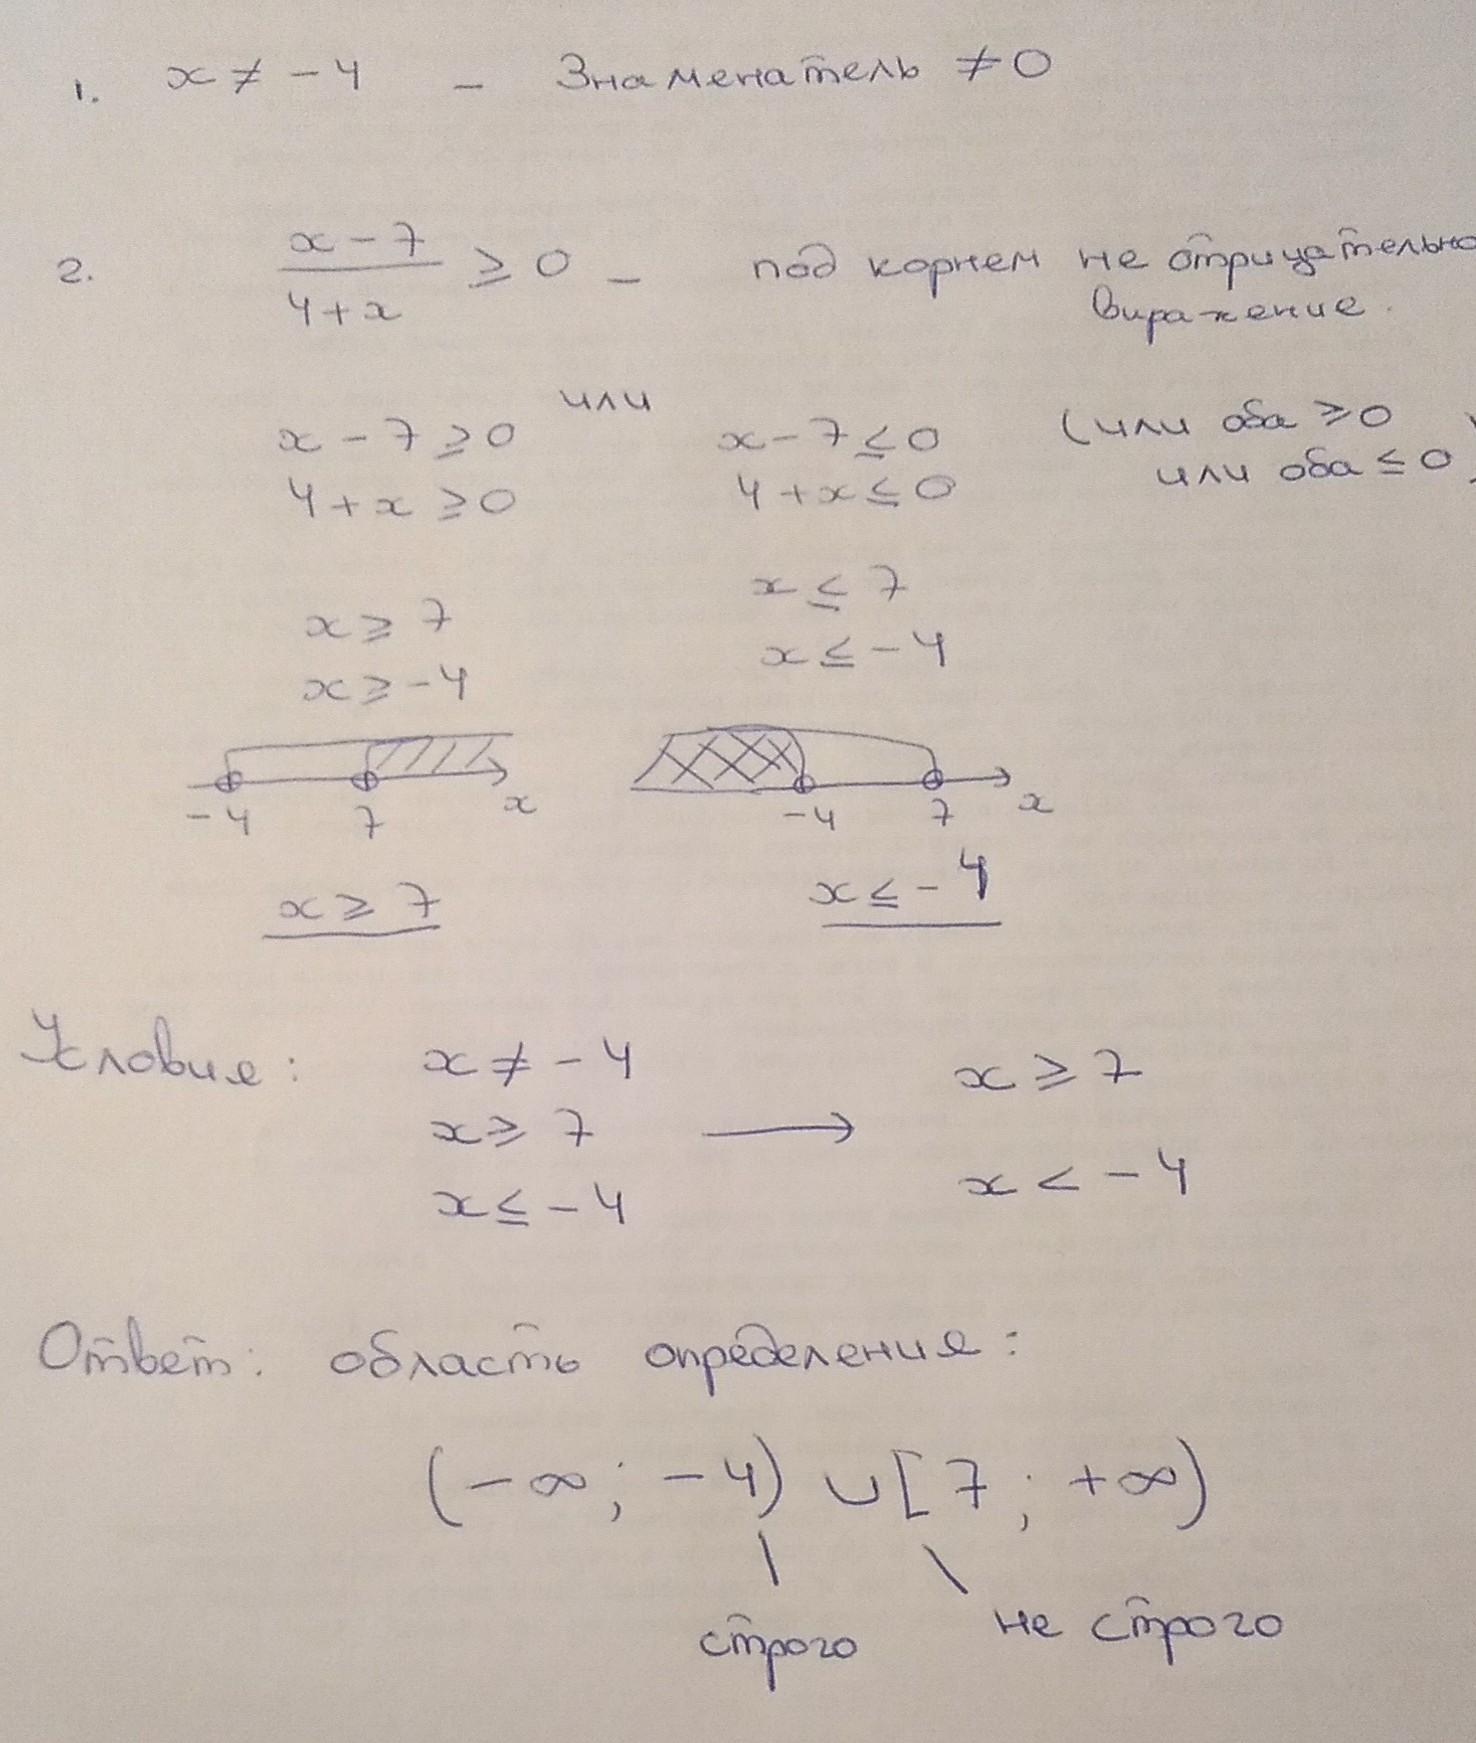 1. x ≠ -4 - Знаменатель ≠ 0
2. x - 7 / 4 + x ≥ 0 - под корнем не отрицательно
виражение.
или
x - 7 ≥ 0 x - 7 ≤ 0 (или оба ≥ 0
4 + x ≥ 0 4 + x ≤ 0 или оба ≤ 0)
x ≥ 7 x ≤ 7
x ≥ -4 x ≤ -4
-4 7 x -4 7 x
x ≥ 7 x ≤ -4
Условие: x ≠ -4 x ≥ 7
x ≥ 7 →
x ≤ -4 x < -4
Ответ: область определения:
(-∞; -4) ∪ [7; +∞)
строго не строго